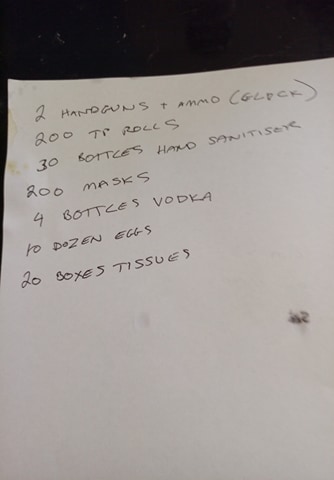 2 HANDGUNS + AMMO (GLOCK)
200 TP ROLLS
30 BOTTLES HAND SANITISER
200 MASKS
4 BOTTLES VODKA
10 DOZEN EGGS
20 BOXES TISSUES